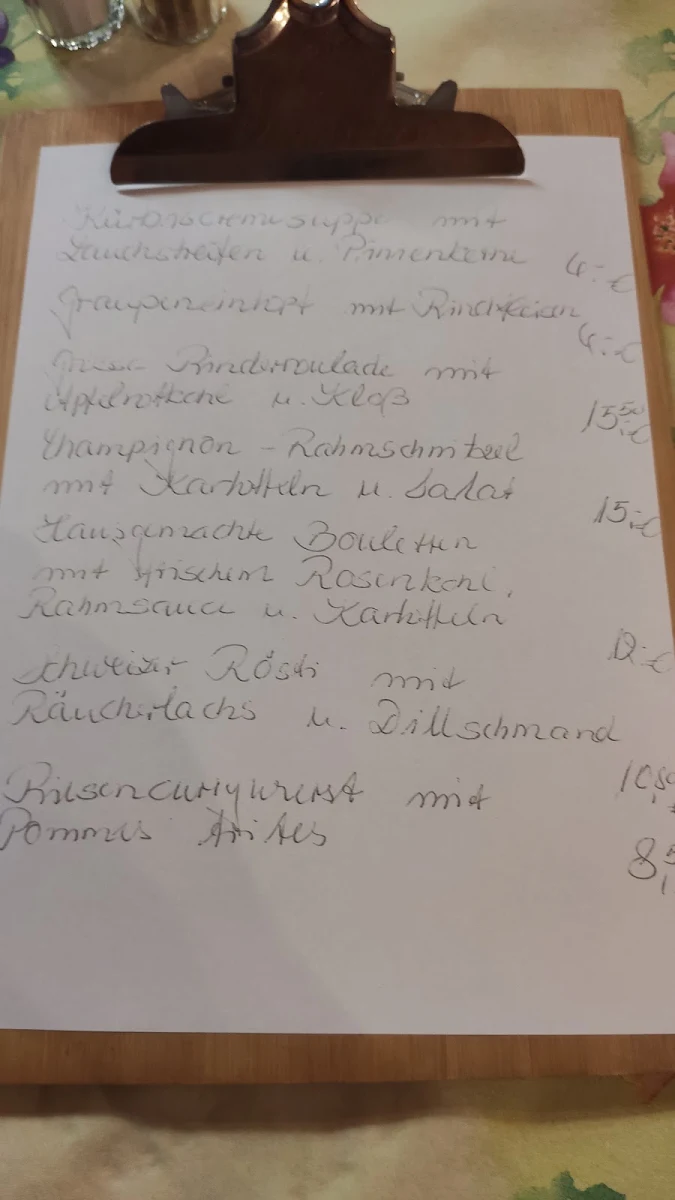 Kürbiscremesuppe mit
Lauchstreifen u. Pinienkerne 4,-€
Graupeneintopf mit Rindfleisch
4,-€
Rinderroulade mit
Apfelrotkohl u. Kloß 15,50€
Champignon-Rahmschnitzel
mit Kartoffeln u. Salat 15,-€
Hausgemachte Bouletten
mit frischem Rosenkohl,
Rahmsauce u. Kartoffeln 12,-€
Schweizer Rösti mit
Räucherlachs u. Dillschmand
Riesencurrywurst mit 10,50
Pommes frites 8,5